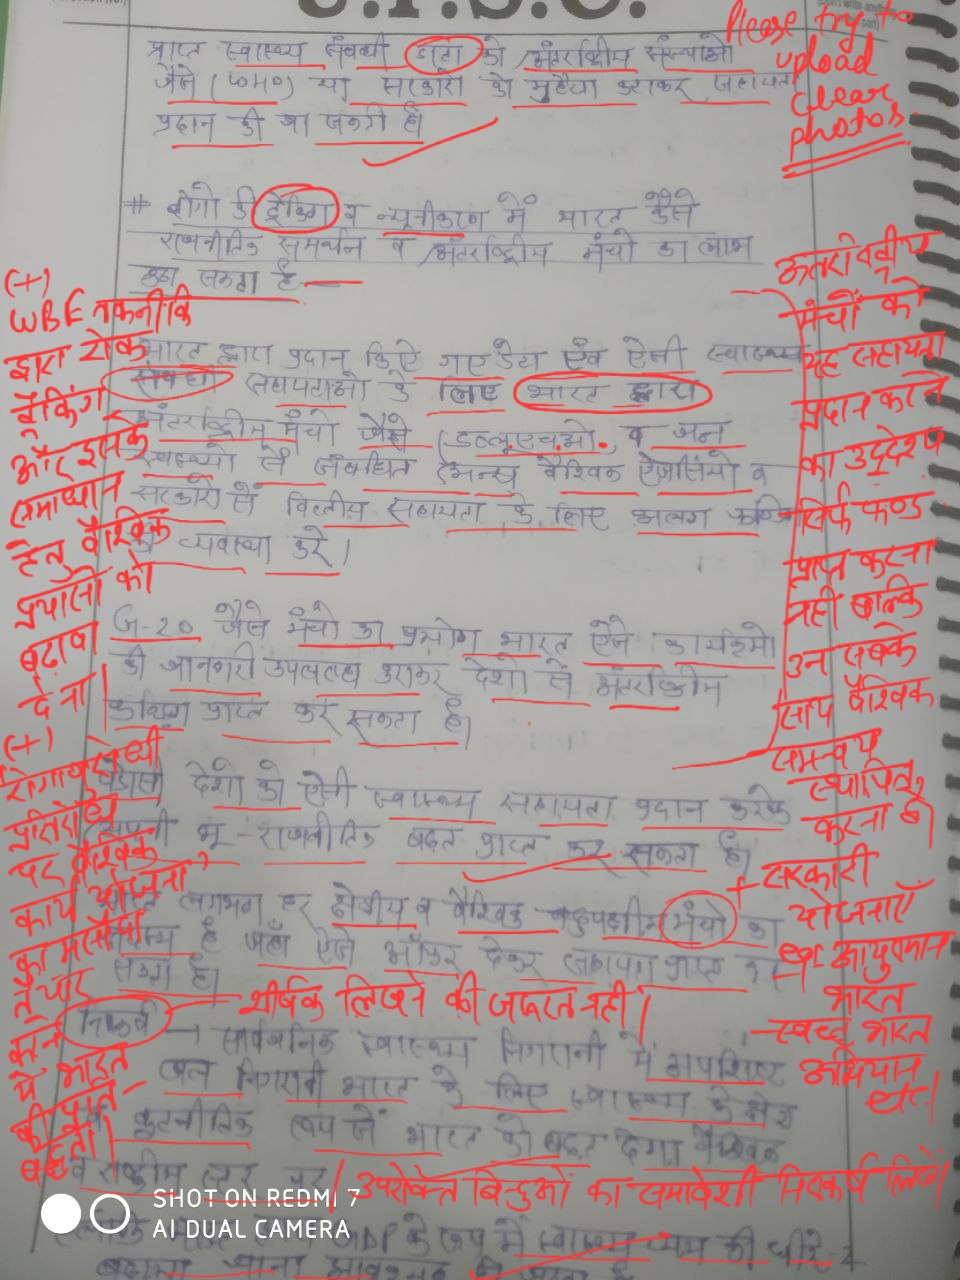 U.P.S.C.
Please try to
upload
clear
photos.
प्राप्त स्वास्थ्य संबंधी डाटा को अंतर्राष्ट्रीय संस्थाओं
जैसे (WHO) या सरकारों को मुहैया कराकर सहायता
प्रदान की जा सकती है।
# रोगों की ट्रैकिंग व न्यूनीकरण में भारत कैसे
राजनीतिक समर्थन व अंतर्राष्ट्रीय मंचो का लाभ
उठा सकता है —
भारत द्वारा प्रदान किऐ गए डेटा एंव ऐसी स्वास्थ्य
संबंधी सहायताओ के लिए भारत द्वारा
अंतर्राष्ट्रीय मंचो जैसे (डब्लूएचओ. व अन्य
स्वास्थ्यो से संबंधित अन्य वैश्विक ऐजेंसियो व
सरकारो से वित्तीय सहायता के लिए अलग
की व्यवस्था करे।
G-20 जैसे मंचो का प्रयोग भारत ऐसे कार्यक्रमो
की जानकारी उपलब्ध कराकर देशो से अंतर्राष्ट्रीय
फंडिंग प्राप्त कर सकता है।
पड़ोसी देशो को ऐसी स्वास्थ्य सहायता प्रदान करके
अपनी भू-राजनीतिक बढ़त प्राप्त कर सकता है।
भारत लगभग हर क्षेत्रीय व वैश्विक बहुपक्षीय मंचो का
सदस्य है जहाँ ऐसे ऑफर देकर सहायता प्राप्त कर
सकता है।
शीर्षक लिखने की जरूरत नहीं।
निष्कर्ष → सार्वजनिक स्वास्थ्य निगरानी में अपशिष्ट
जल निगरानी भारत के लिए स्वास्थ्य के क्षेत्र
कूटनीतिक रूप से भारत को बढ़त देगा वैश्विक
व राष्ट्रीय स्तर पर।
उपरोक्त बिंदुओं का समावेशी निष्कर्ष लिखें।
GDP के रूप में स्वास्थ्य व्यय को धीरे-2
बढ़ाया जाना आवश्यक
(+)
WBE तकनीकि
द्वारा रोक
ट्रैकिंग
और इसके
समाधान
हेतु वैश्विक
प्रयासों को
बढ़ावा
देना
(+)
रोगाणुरोधी
प्रतिरोध
पर वैश्विक
कार्य योजना
का मसौदा
तैयार
करने
में भारत
की
अंतर्राष्ट्रीय
मंचों को
यह सहायता
प्रदान करने
का उद्देश्य
सिर्फ फण्ड
प्राप्त करना
नहीं बल्कि
उन सबके
साथ वैश्विक
समन्वय
स्थापित
करना है।
+ सरकारी
योजनाएँ
आयुष्मान
भारत
- स्वच्छ भारत
अभियान
etc.
SHOT ON REDMI 7
AI DUAL CAMERA